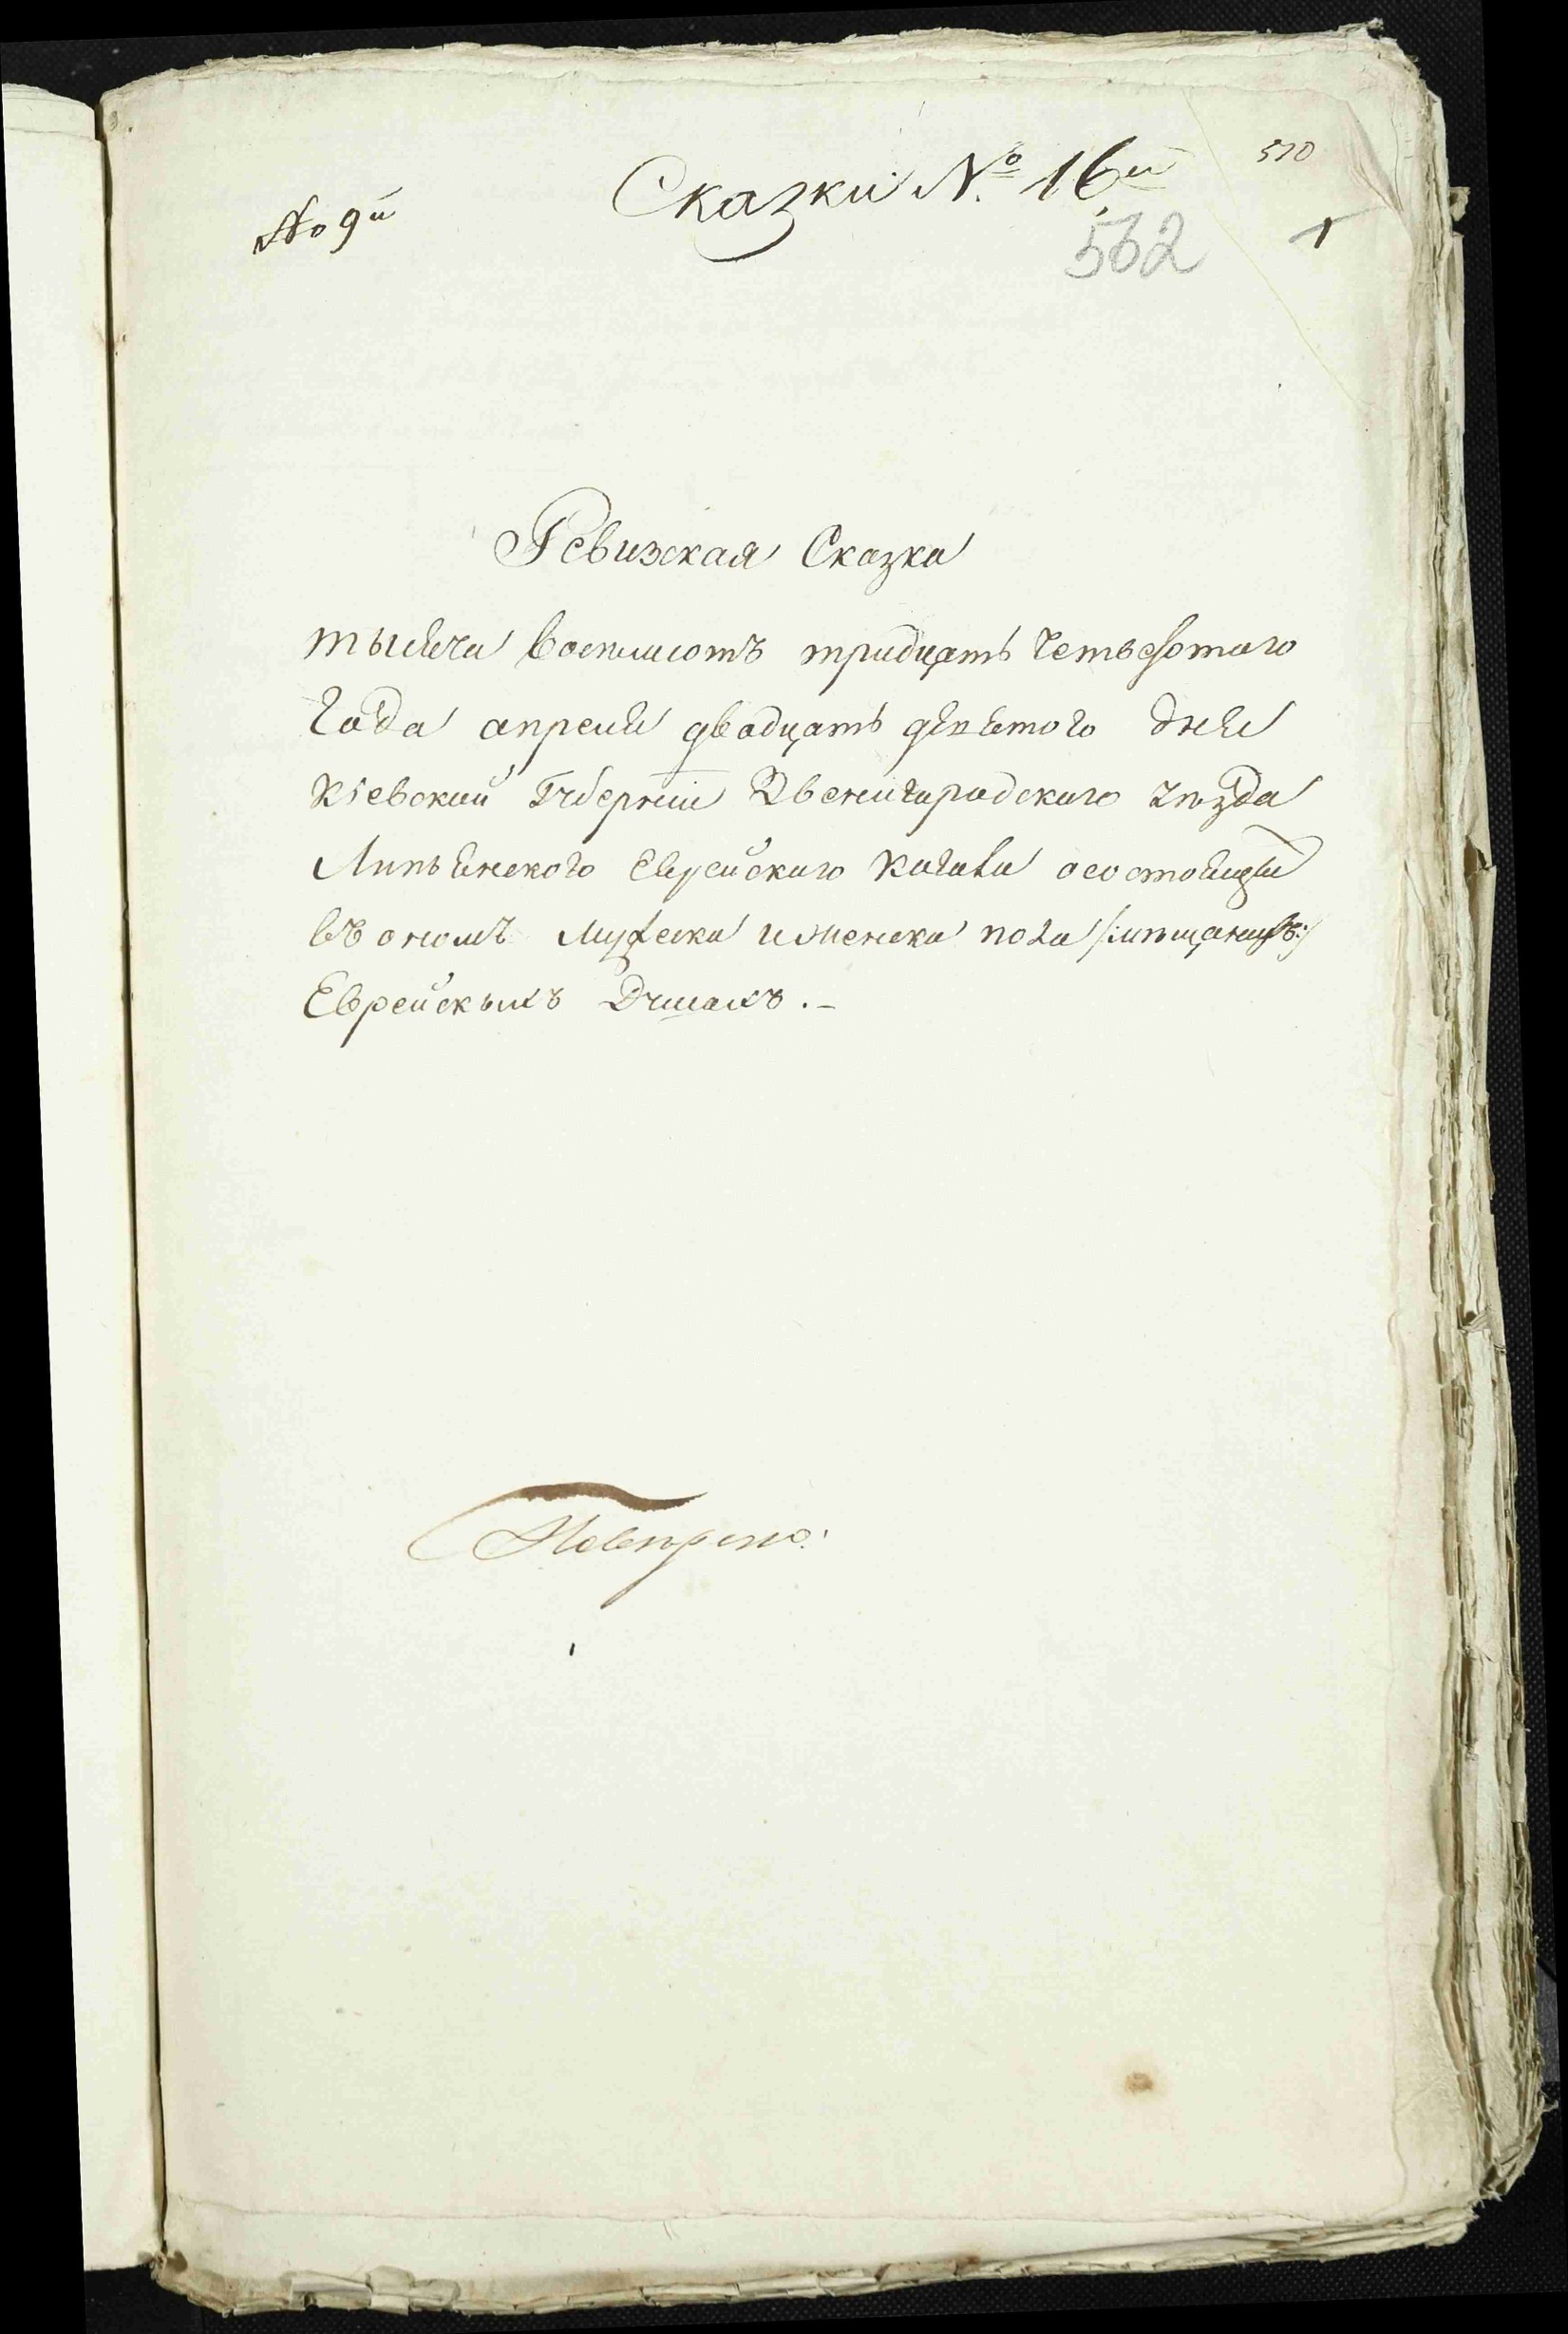 Сказки №. 16й
510
№ 9й
562
1
Ревизская Сказка
тысяча восемьсотъ тридцать четвертого
года апреля двадцать девятого дня
Кіевской Губерніи Звенигородского уѣзда
Еврейского Кагала о состоящихъ
въ ономъ мужеска и женска пола /:мѣщанахъ:/
Еврейскихъ Душахъ.–